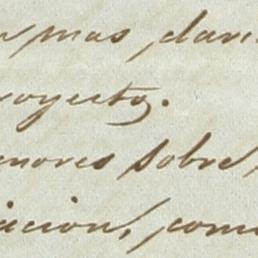 mas, dari
royecto.
enores sobre
iacion, como